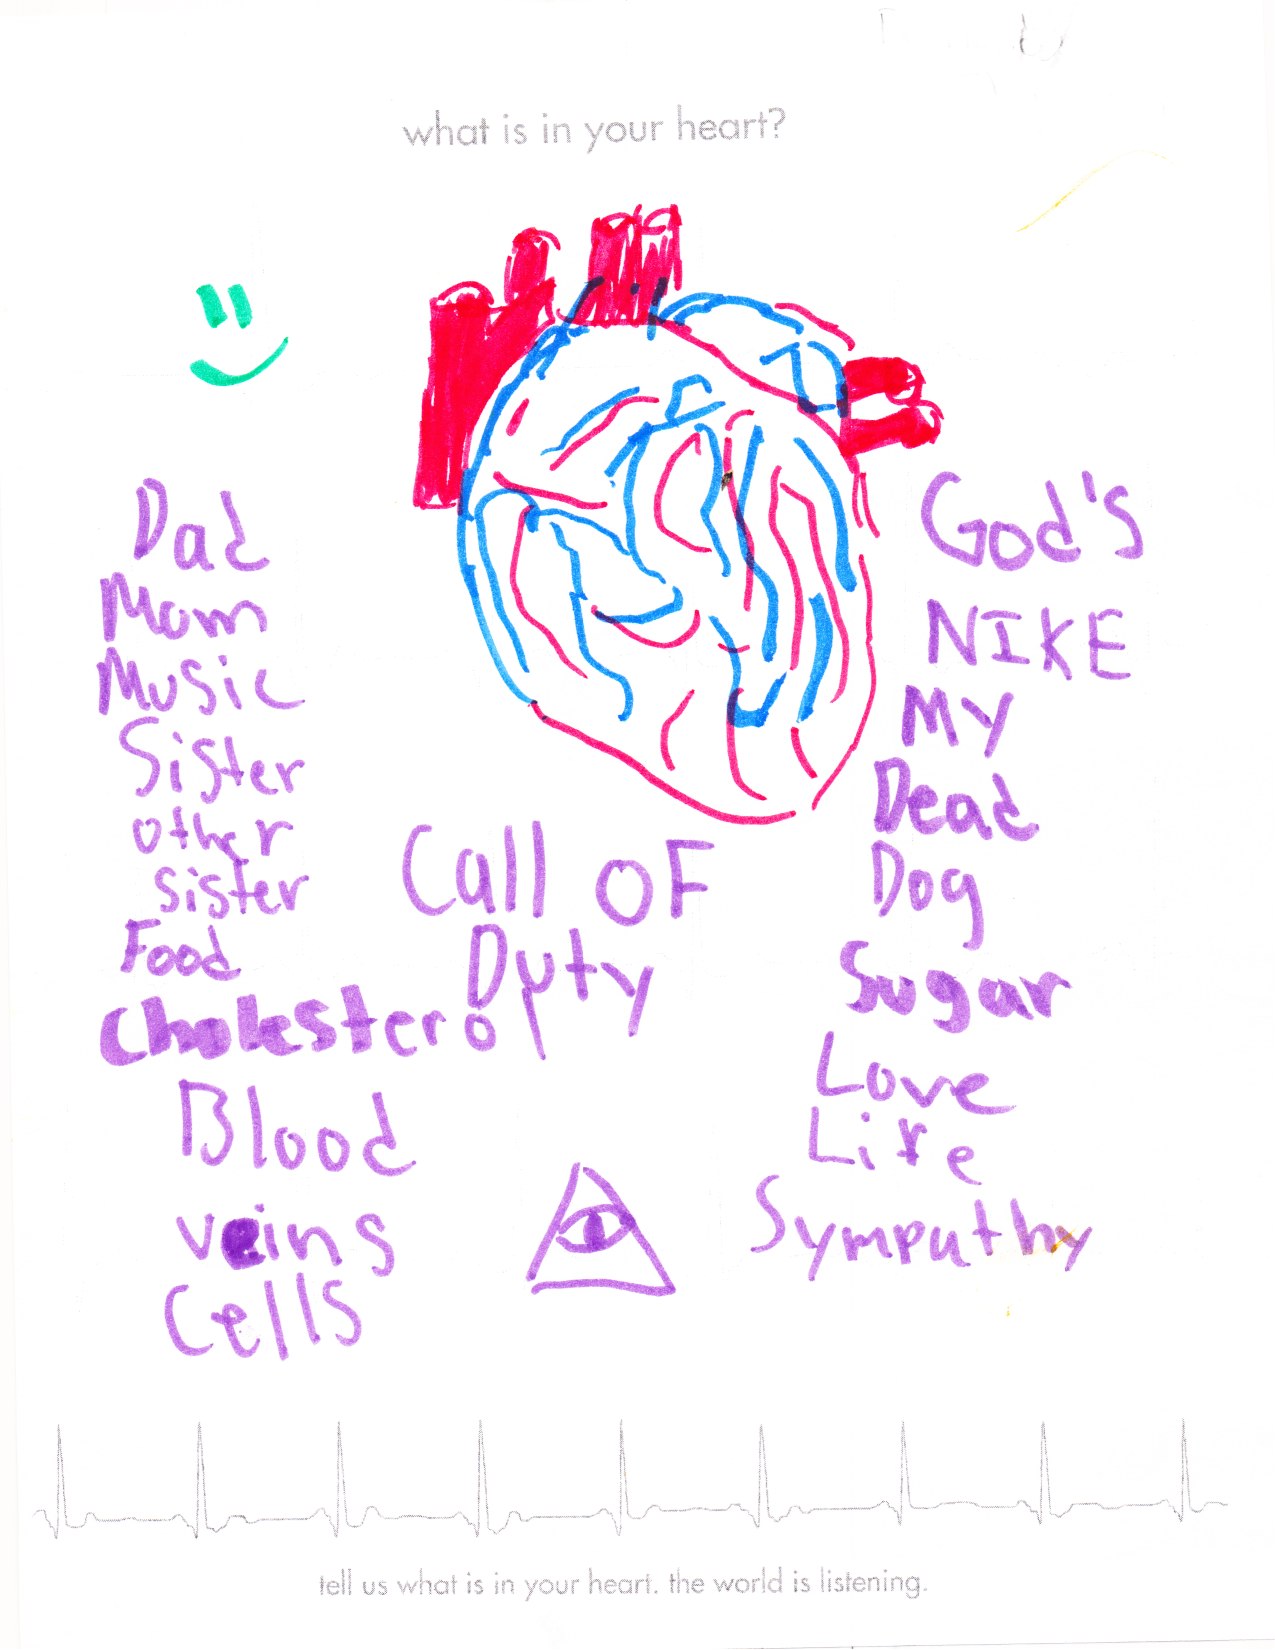 what is in your heart?
Dad
Mom
Music
Sister
other
sister
Food
Cholesterol
Blood
veins
Cells
Call OF
Duty
God's
NIKE
My
Dead
Dog
Sugar
Love
Life
Sympathy
tell us what is in your heart. the world is listening.